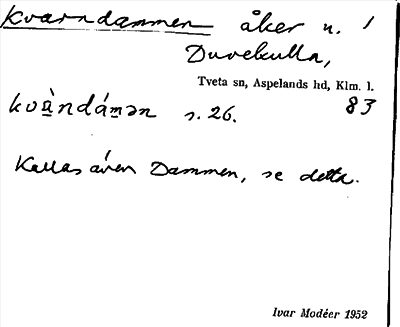 Kvarndammen åker n. 1
Duvekulla,
Tveta sn, Aspelands hd, Klm. l.
83
kvà̱ndám̱ən s. 26.
Kallas även Dammen, se detta.
Ivar Modéer 1952